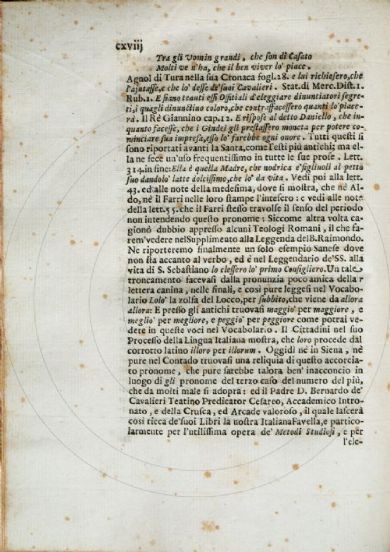 cxviij
Tra gli Uomin grandi, che son di Casato
Molti ve n'ha, che il ben viver lo' piace.
Agnol di Tura nella sua Cronaca fogl. 28. e lui richiesero, che
l'ajutasse, e che lo' desse de'suoi Cavalieri. Stat. di Merc. Dist. 1.
Rub. 1. E siano tenuti essi Offitiali d'eleggiare dinuntiatori segre-
ti, i quagli dinuntino coloro, che contraffacessero quanti lo' piace-
rà. Il Rè Giannino cap. 12. E rispose al detto Daniello, che in-
quanto facesse, che i Giudei gli prestassero moneta per potere co-
minciare sua impresa, esso lo' farebbe ogni onore. Tutti questi si
sono riportati avanti la Santa, come Testi più antichi; ma el-
la ne fece un'uso frequentissimo in tutte le sue prose. Lett.
314. in fine: Ella è quella Madre, che nodrica e'figliuoli al petto
suo dandolo' latte dolcissimo, che lo' da vita. Vedi poi alla lett.
43. ed alle note della medesima, dove si mostra, che nè Al-
do, nè il Farri nelle loro stampe l'intesero: e vedi alle note
della lett. 55. che il Farri stesso travolse il senso del periodo
non intendendo questo pronome: Siccome altra volta ca-
gionò dubbio appresso alcuni Teologi Romani, il che fa-
rem'vedere nel Supplimento alla Leggenda del B. Raimondo.
Ne riporteremo finalmente un solo esempio Sanese dove
non sta accanto al verbo, ed è nel Leggendario de'SS. alla
vita di S. Sebastiano lo clessero lo' primo Consigliero. Un tale
troncamento facevasi dalla pronunzia poco amica della r
lettera canina, nelle finali, e così pure leggeti nel Vocabo-
lario Lolo' la zolfa del Locco, per subbito, che viene da allora
allora: E presso gli antichi truovasi maggio' per maggiore, e
meglio' per megliore, e peggio' per peggiore come potrai ve-
dere in queste voci nel Vocabolario. Il Cittadini nel suo
Processo della Lingua Italiana mostra, che loro procede dal
corrotto latino illoro per illorum. Oggidì nè in Siena, nè
pure nel Contado truovasi una reliquia di questo accorcia-
to pronome, che pure sarebbe talora ben'inacconcio in
luogo di gli pronome del terzo caso del numero del più,
che da molti male si adopra: ed il Padre D. Bernardo de'
Cavalieri Teatino Predicator Cesareo, Accademico Intro-
nato, e della Crusca, ed Arcade valoroso, il quale lascerà
così ricca de'suoi Libri la nostra Italiana Favella, e partico-
larmente per l'utilissima opera de' Metodi Studiosi, e per
l'ele-